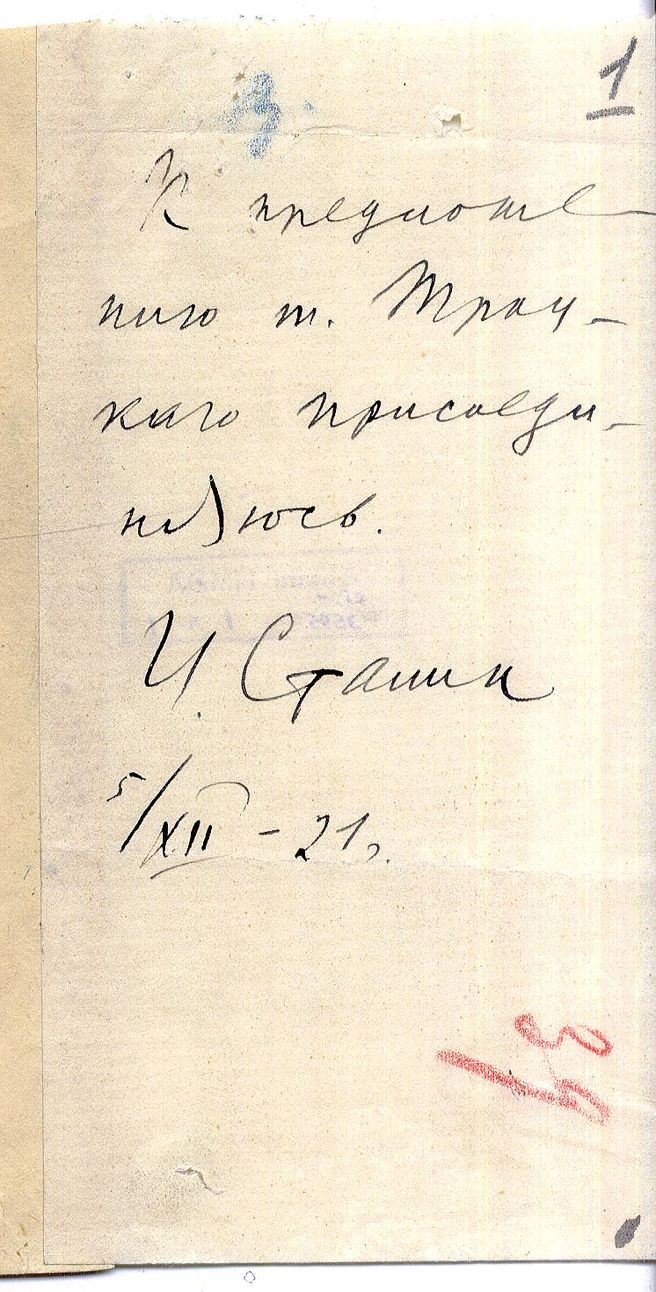 1
3.
К предложе-
нию т. Троц-
каго присоеди-
няюсь.
И. Сталин
5/XII – 21 г.